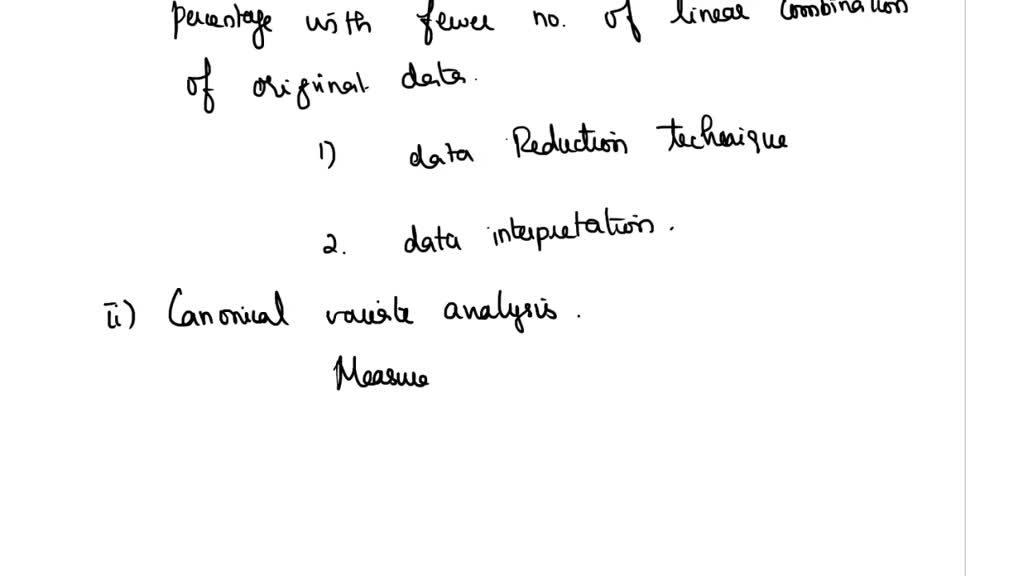 percentage with fewer no. of linear combination
of original data.
1) data Reduction technique
2. data interpretation.
ii) Canonical variate analysis.
Measure